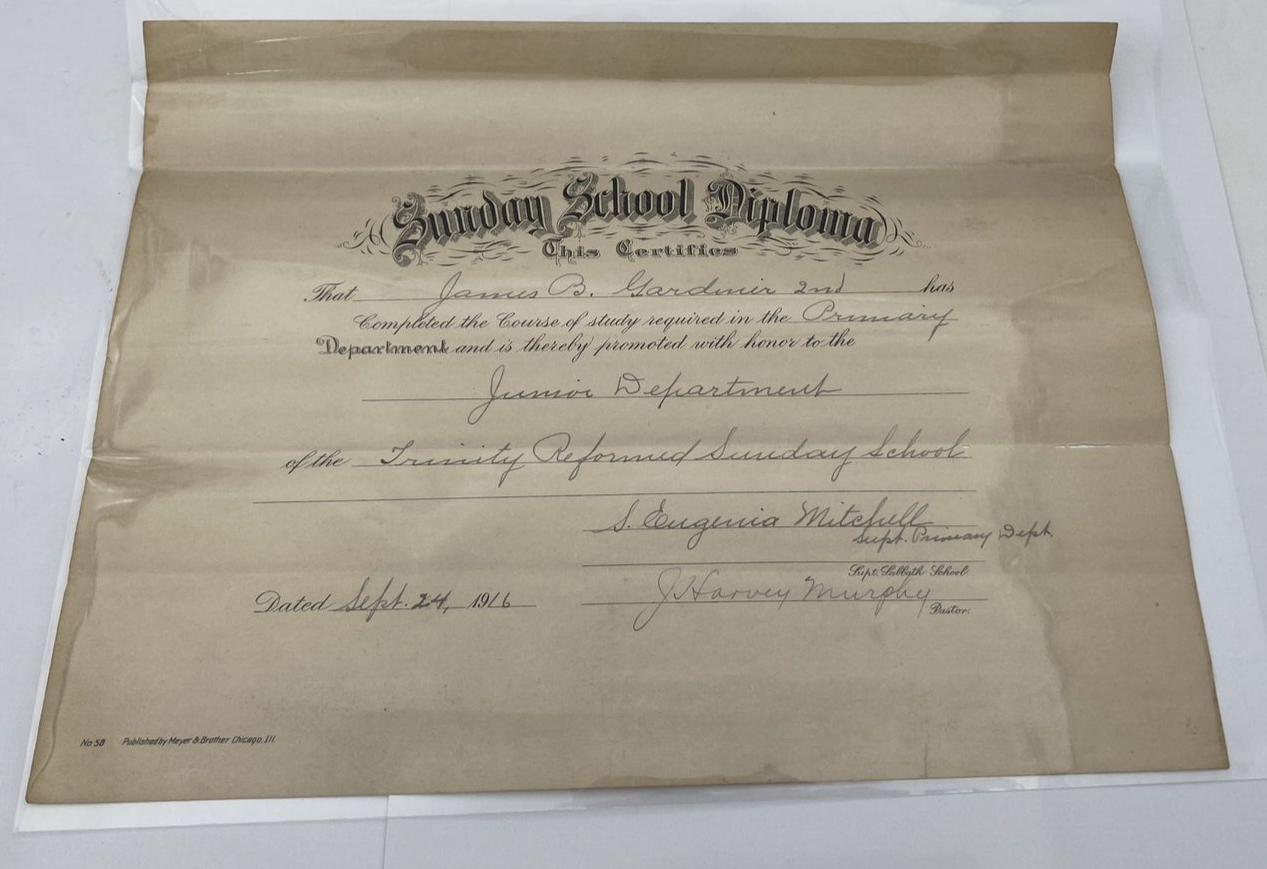 Sunday School Diploma
This Certifies
That James B. Gardinier 2nd has
Completed the Course of study required in the Primary
Department and is thereby promoted with honor to the
Junior Department
of the Trinity Reformed Sunday School
S. Eugenia Mitchell
Supt. Primary Dept.
Supt. Sabbath School.
Dated Sept. 24, 1916 J Harvey Murphy
Pastor.
No 58 Published by Meyer & Brother Chicago, Ill.